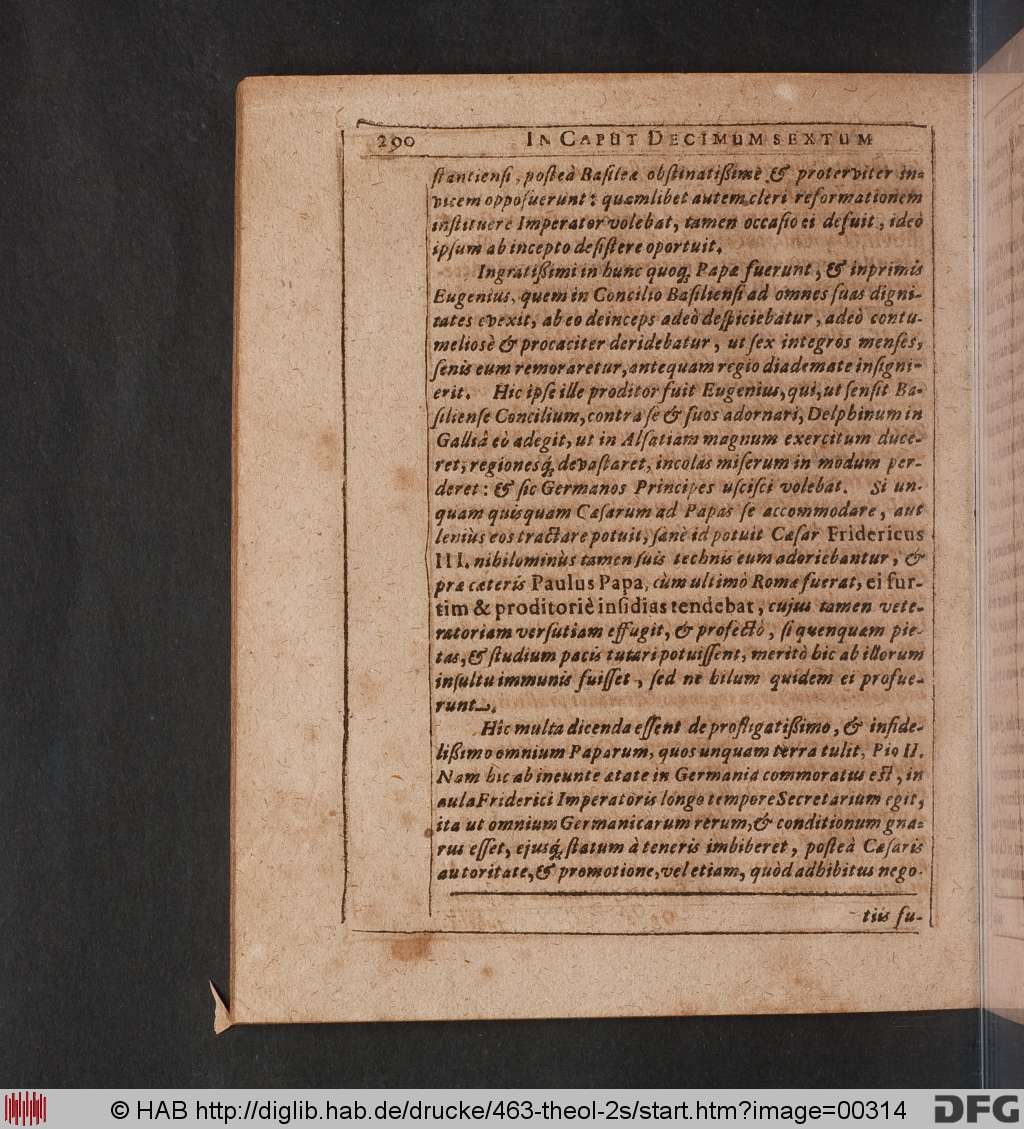 290 IN CAPUT DECIMUM SEXTUM
ſtantienſi, poſteà Baſileæ obſtinatißimè & proterviter in-
vicem oppoſuerunt: quamlibet autem cleri reformationem
inſtituere Imperator volebat, tamen occaſio ei defuit, ideò
ipſum ab incepto deſiſtere oportuit.
Ingratißimi in hunc quoq; Papæ fuerunt, & inprimis
Eugenius, quem in Concilio Baſilienſi ad omnes ſuas digni-
tates evexit, ab eo deinceps adeò deſpiciebatur, adeò contu-
melioſè & procaciter deridebatur, ut ſex integros menſes,
ſenis eum remoraretur, antequam regio diademate inſigni-
erit. Hic ipſe ille proditor fuit Eugenius, qui, ut ſenſit Ba-
ſilienſe Concilium, contra ſe & ſuos adornari, Delphinum in
Galliâ eò adegit, ut in Alſatiam magnum exercitum duce-
ret, regionesq́; devaſtaret, incolas miſerum in modum per-
deret: & ſic Germanos Principes ulciſci volebat. Si un-
quam quisquam Cæſarum ad Papas ſe accommodare, aut
leniùs eos tractare potuit, ſanè id potuit Cæſar Fridericus
III. nihilominùs tamen ſuis technis eum adoriebantur, &
præ cæteris Paulus Papa, cùm ultimò Romæ fuerat, ei fur-
tim & proditoriè inſidias tendebat, cujus tamen vete-
ratoriam verſutiam effugit, & profectò, ſi quenquam pie-
tas, & ſtudium pacis tutari potuiſſent, meritò hic ab illorum
inſultu immunis fuiſſet, ſed ne hilum quidem ei profue-
runt.
Hîc multa dicenda eſſent de profligatißimo, & infide-
lißimo omnium Paparum, quos unquam terra tulit, Pio II.
Nam hic ab ineunte ætate in Germania commoratus eſt, in
aula Friderici Imperatoris longo tempore Secretarium egit,
ita ut omnium Germanicarum rerum, & conditionum gna-
rus eſſet, ejusq́; ſtatum à teneris imbiberet, poſteà Cæſaris
autoritate, & promotione, vel etiam, quòd adhibitus nego-
tiis ſu-
© HAB http://diglib.hab.de/drucke/463-theol-2s/start.htm?image=00314 DFG